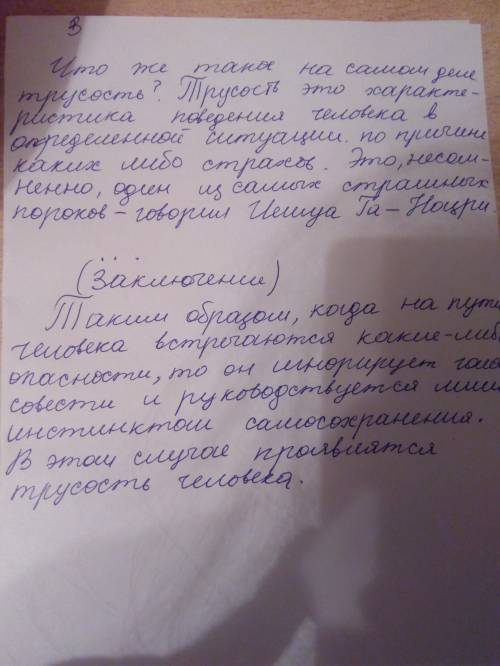 3
Что же такое на самом деле
трусость? Трусость это характе-
ристика поведения человека в
определенной ситуации. по причине
каких либо страхов. Это, несом-
ненно, один из самых страшных
пороков – говорил Иешуа Га – Ноцри
(Заключение)
Таким образом, когда на пути
человека встречаются какие-либ
опасности, то он игнорирует голо
совести и руководствуется лиш
инстинктом самосохранения.
В этом случае проявлятся
трусость человека.